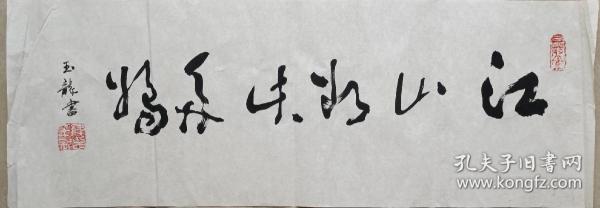 江山如此多嬌
玉龍書
孔夫子旧书网
www.kongfz.com